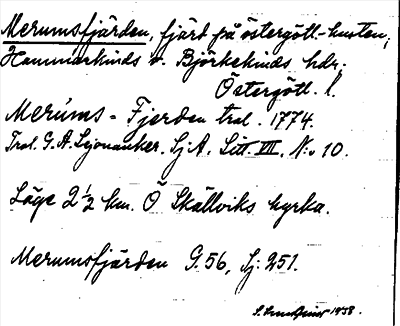 Merumsfjärden, fjärd på östergötl-kusten,
Hammarkinds o. Björkekinds hdr.
Östergötl. l.
Merums-Fjerden tral. 1774.
Tral. G. A. Ljonanker. SjA. Litt. VII. No 10.
Läge 2½ km. Ö Skällviks kyrka.
Merumsfjärden G. 56, Sj. 251.
1938.